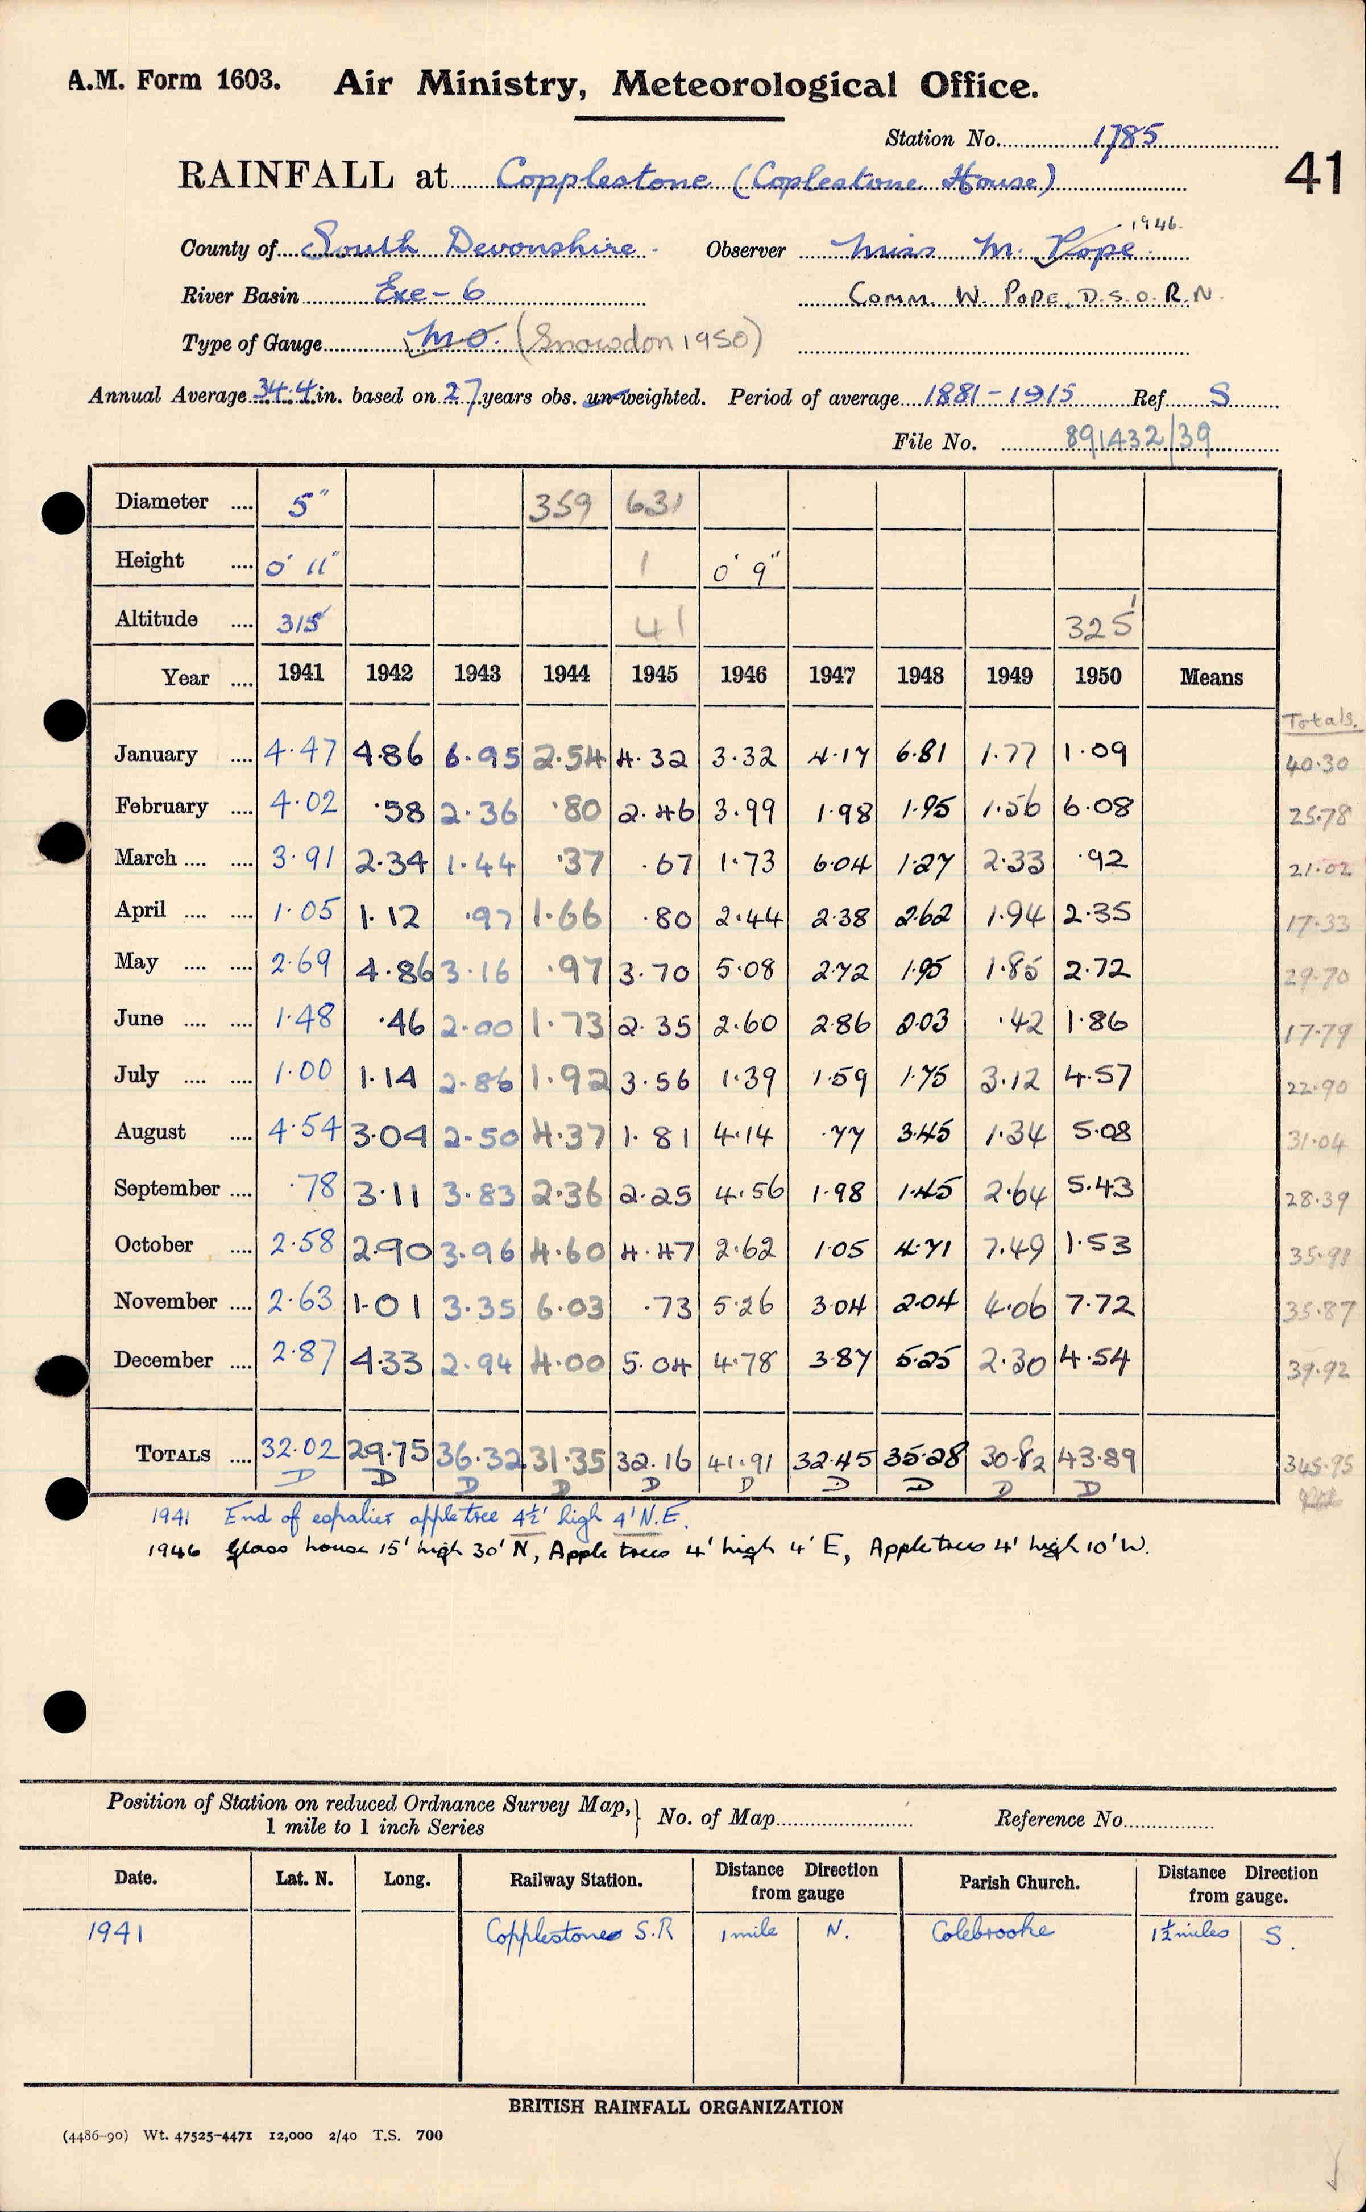 A.M. Form 1603. Air Ministry, Meteorological Office.
Station No. 1785
41
RAINFALL at Copplestone (Coplestone House)
County of South Devonshire. Observer Miss M. Pope. 1946.
River Basin Exe - 6 Comm. W. Pope, D.S.O. R.N.
Type of Gauge M.O. (Snowdon 1950)
Annual Average 34.4 in. based on 27 years obs. un-weighted. Period of average 1881-1915 Ref S
File No. 891432/39
Diameter .... 5" 359 631
Height .... 0' 11" 1 0' 9"
Altitude .... 315' 41 325'
Year .... 1941 1942 1943 1944 1945 1946 1947 1948 1949 1950 Means
Totals.
January .... 4.47 4.86 6.95 2.54 4.32 3.32 4.17 6.81 1.77 1.09 40.30
February .... 4.02 .58 2.36 .80 2.46 3.99 1.98 1.95 1.56 6.08 25.78
March .... .... 3.91 2.34 1.44 .37 .67 1.73 6.04 1.27 2.33 .92 21.02
April .... .... 1.05 1.12 .97 1.66 .80 2.44 2.38 2.62 1.94 2.35 17.33
May .... .... 2.69 4.86 3.16 .97 3.70 5.08 2.72 1.95 1.85 2.72 29.70
June .... .... 1.48 .46 2.00 1.73 2.35 2.60 2.86 2.03 .42 1.86 17.79
July .... .... 1.00 1.14 2.86 1.92 3.56 1.39 1.59 1.75 3.12 4.57 22.90
August .... 4.54 3.04 2.50 4.37 1.81 4.14 .77 3.45 1.34 5.08 31.04
September .... .78 3.11 3.83 2.36 2.25 4.56 1.98 1.45 2.64 5.43 28.39
October .... 2.58 2.90 3.96 4.60 4.47 2.62 1.05 4.71 7.49 1.53 35.91
November .... 2.63 1.01 3.35 6.03 .73 5.26 3.04 2.04 4.06 7.72 35.87
December .... 2.87 4.33 2.94 4.00 5.04 4.78 3.87 5.25 2.30 4.54 39.92
Totals .... 32.02 29.75 36.32 31.35 32.16 41.91 32.45 35.28 30.82 43.89 345.95
D D D D D D D D D D
1941 End of espalier apple tree 4½' high 4' N.E.
1946 Glass house 15' high 30' N, Apple trees 4' high 4' E, Apple trees 4' high 10' W.
Position of Station on reduced Ordnance Survey Map, 1 mile to 1 inch Series } No. of Map Reference No.
Date. Lat. N. Long. Railway Station. Distance Direction from gauge Parish Church. Distance Direction from gauge.
1941 Copplestone S.R 1 mile N. Colebrooke 1½ miles S.
BRITISH RAINFALL ORGANIZATION
(4486-90) Wt. 47525-4471 12,000 2/40 T.S. 700